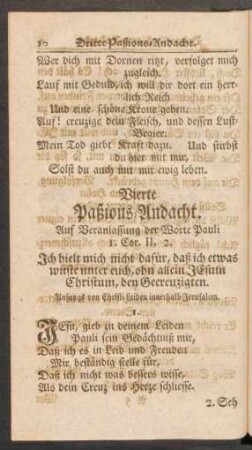 10 Dritte Paßions-Andacht.
Wer dich mit Dornen ritzt, verfolget mich
zugleich.
Lauf mit Geduld, ich will dir dort ein herr-
lich Reich
Und eine schöne Krone geben.
Auf! creuzige dein Fleisch, und dessen Lust-
Begier.
Mein Tod giebt Kraft dazu. Und stirbst
du hier mit mir,
Solst du auch mit mir ewig leben.
Vierte
Paßions-Andacht.
Auf Veranlassung der Worte Pauli
1. Cor. II, 2.
Ich hielt mich nicht dafür, daß ich etwas
wüste unter euch, ohn allein JEsum
Christum, den Gecreuzigten.
Anfangs von Christi Leiden innerhalb Jerusalem.
1.
JEsu, gieb zu deinem Leiden
Pauli sein Gedächtniß mir,
Daß ich es in Leid und Freuden
Mir beständig stelle für,
Daß ich nicht was bessers wisse,
Als dein Creuz ins Herze schliesse.
2. Seh